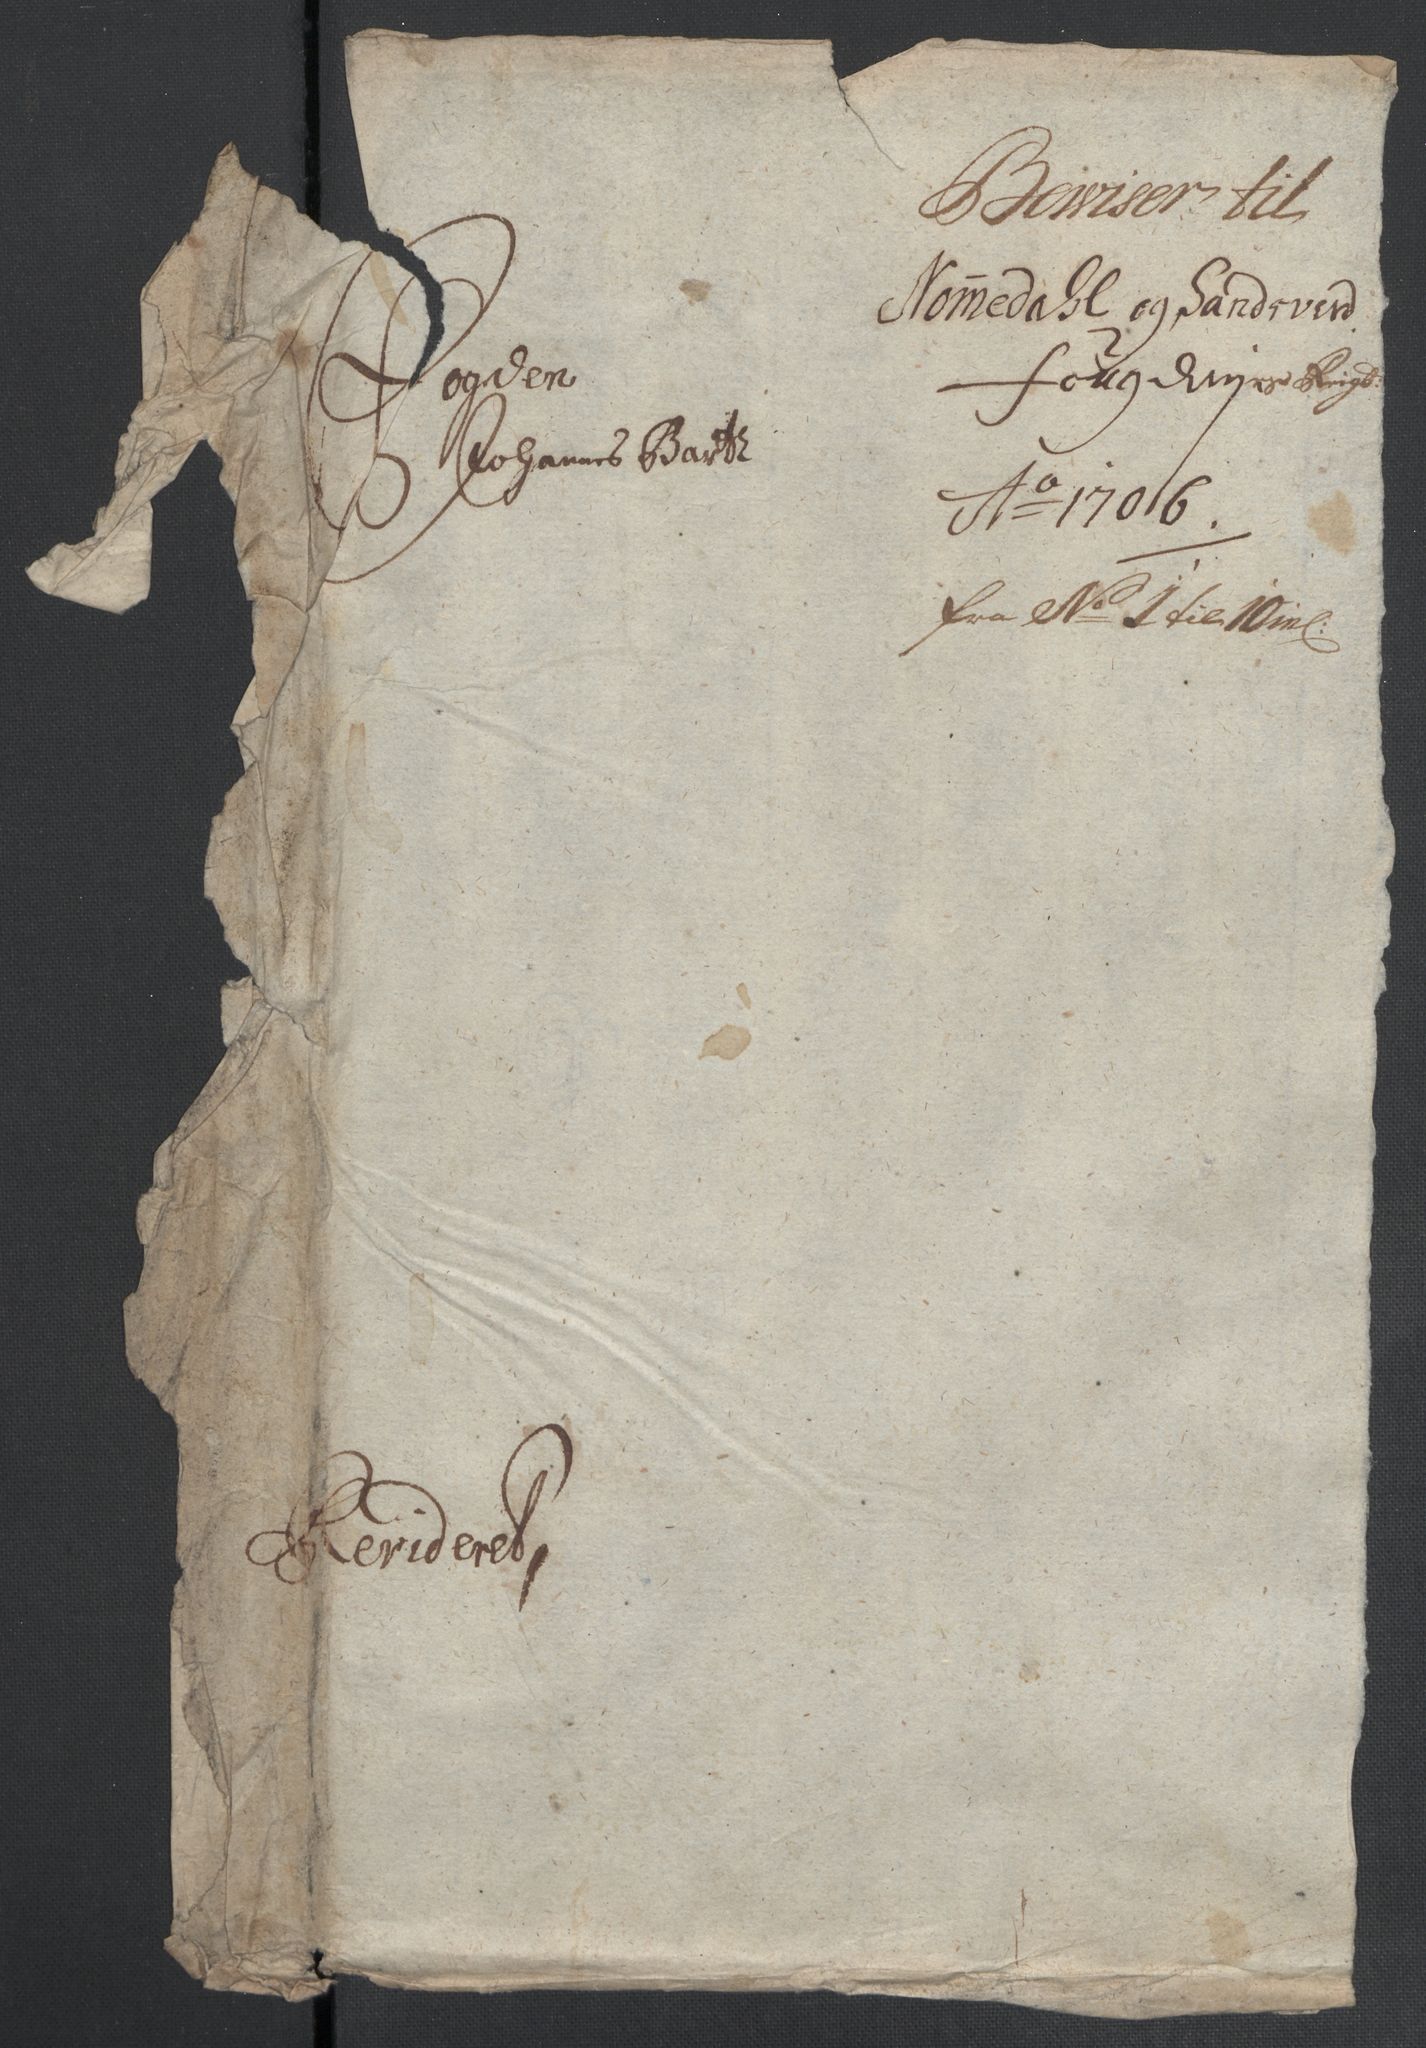 Bewiser til
Nom̄edahl og Sandsverd
fougderiers Regt:
Ao 1706.
fra No 1 til 10 incl:
Fogden
Johannes Bartz
Revideret